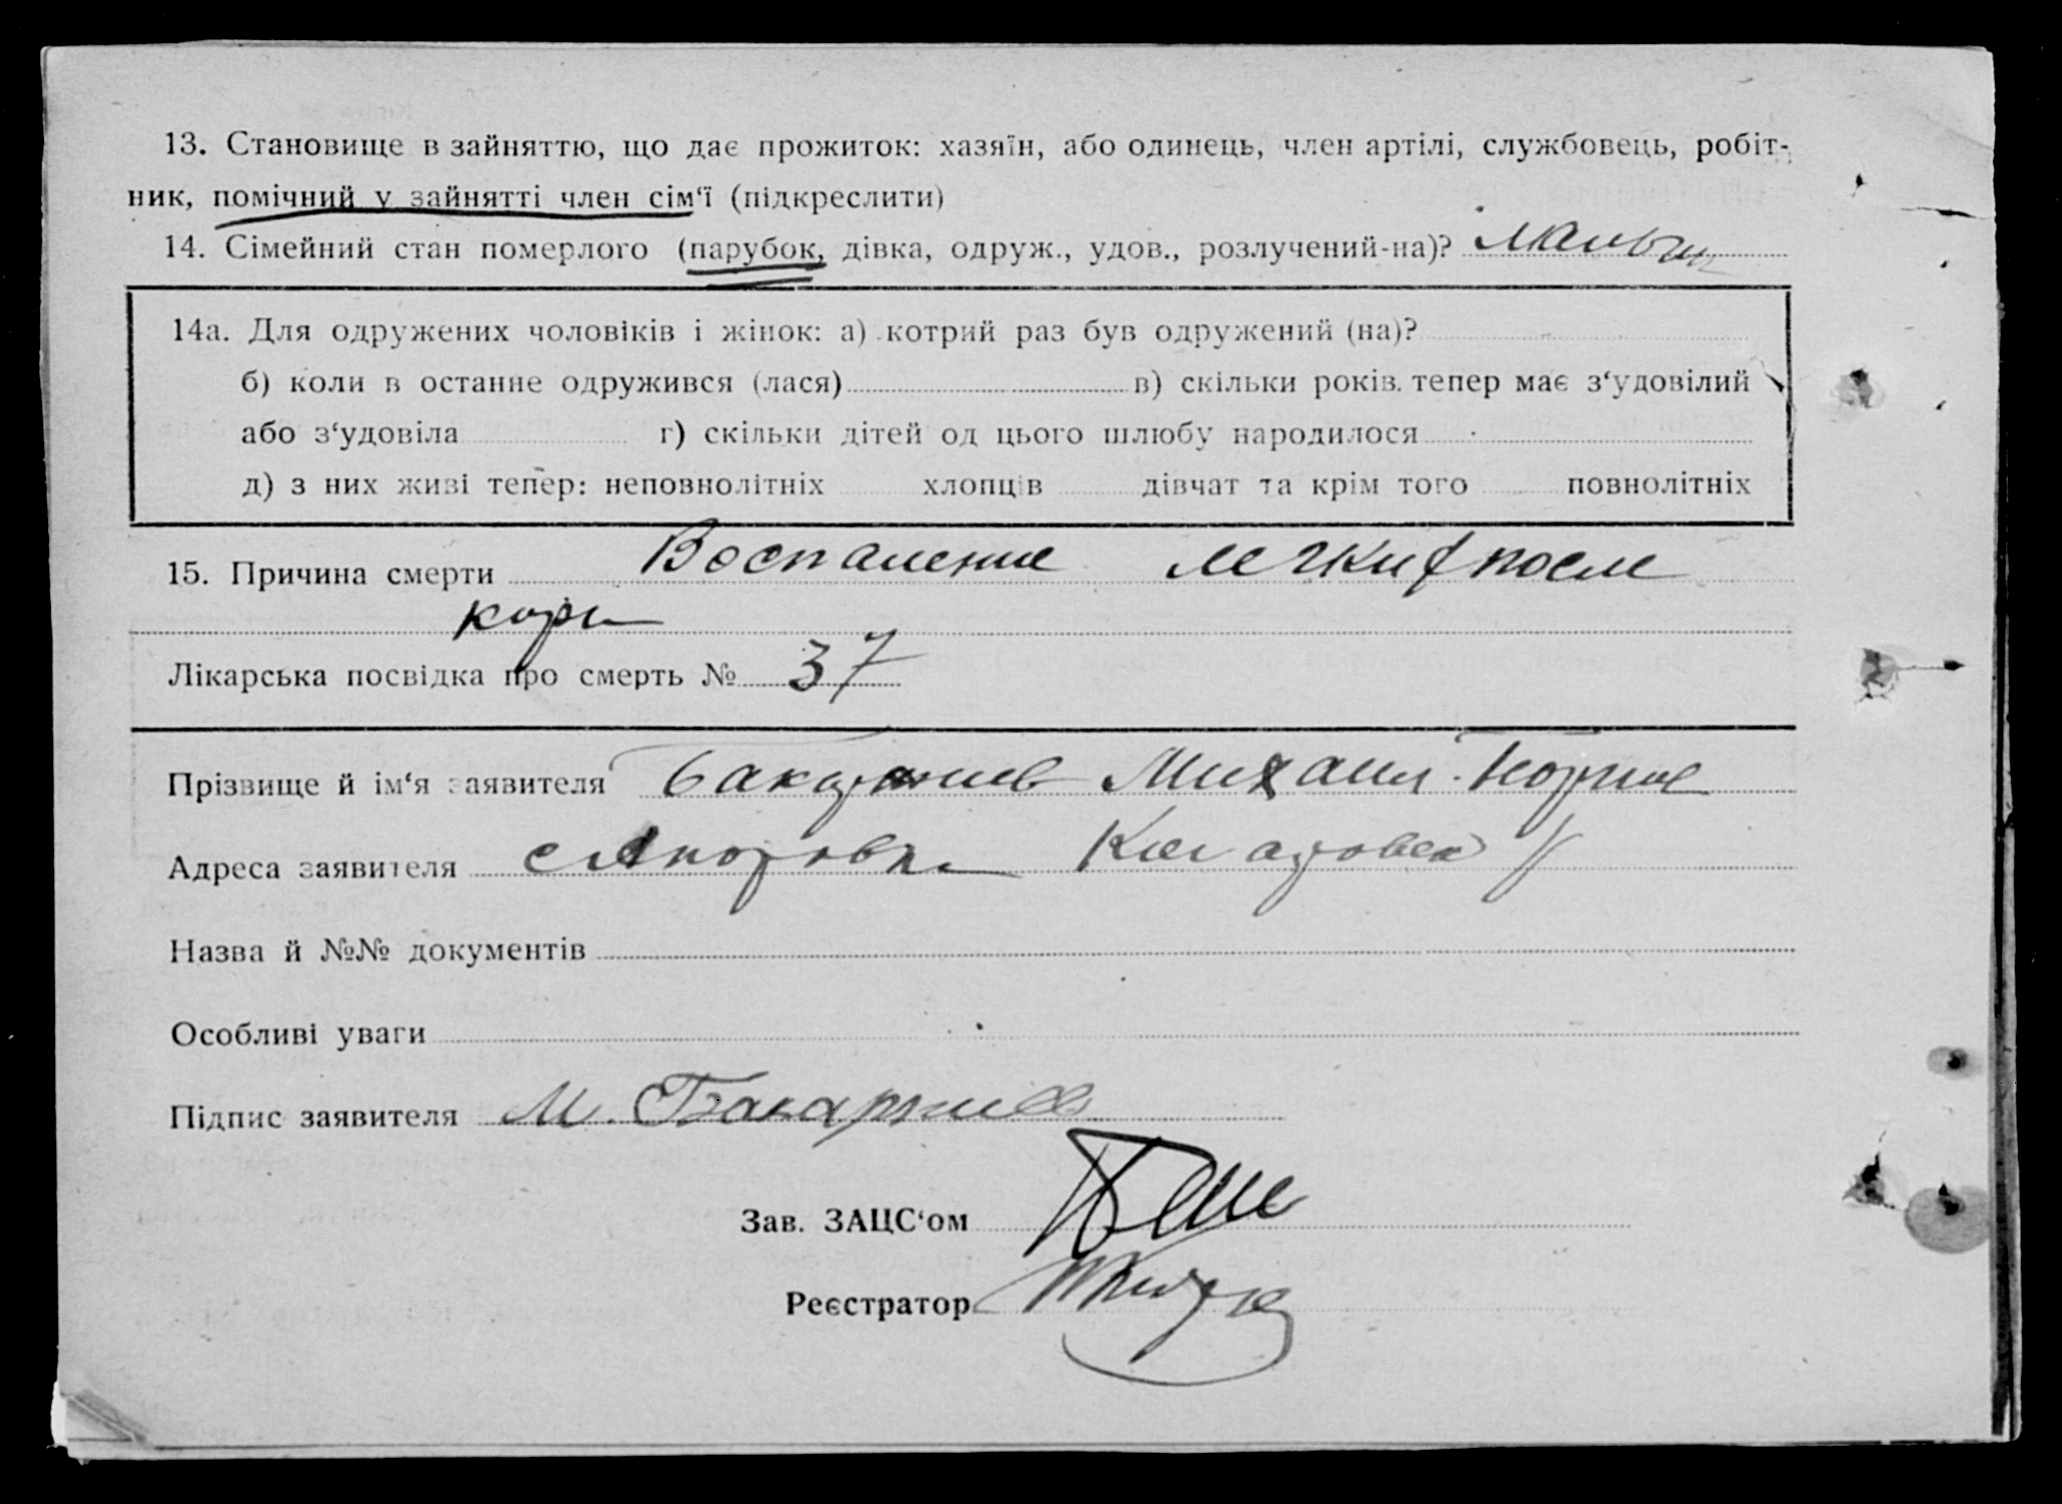 13. Становище в зайняттю, що дає прожиток: хазяїн, або одинець, член артілі, службовець, робіт-
ник, помічний у зайнятті член сім‘ї (підкреслити)
14. Сімейний стан померлого (парубок, дівка, одруж., удов., розлучений-на)?
14а. Для одружених чоловіків і жінок: а) котрий раз був одружений (на)?
б) коли в останне одружився (лася) в) скільки років тепер має з‘удовілий
або з‘удовіла г) скільки дітей од цього шлюбу народилося
д) з них живі тепер: неповнолітніх хлопців дівчат та крім того повнолітніх
15. Причина смерти Воспаление легких после
кори
Лікарська посвідка про смерть № 37
Прізвище й ім‘я заявителя Михаил
Адреса заявителя
Назва й №№ документів
Особливі уваги
Підпис заявителя М.
Зав. ЗАЦС‘ом
Реєстратор